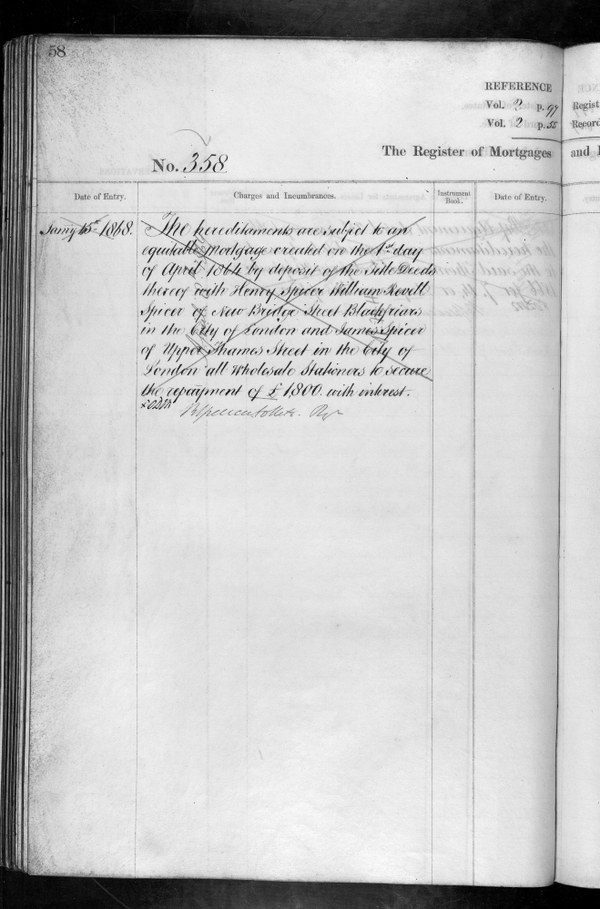 58
REFERENCE
Vol. 2 p. 97
Vol. 2 p. 55
Regist
Record
No. 358
The Register of Mortgages
and
Date of Entry.
Charges and Incumbrances.
Instrument
Book.
Date of Entry.
Jany 1868.
The hereditaments are subject to an
equitable mortgage created on the 1st day
of April 1864 by deposit of the Title Deeds
thereof with Henry Spicer William Revell
Spicer of New Bridge Street Blackfriars
in the City of London and James Spicer
of Upper Thames Street in the City of
London all Wholesale Stationers to secure
the repayment of £1,800. with interest.